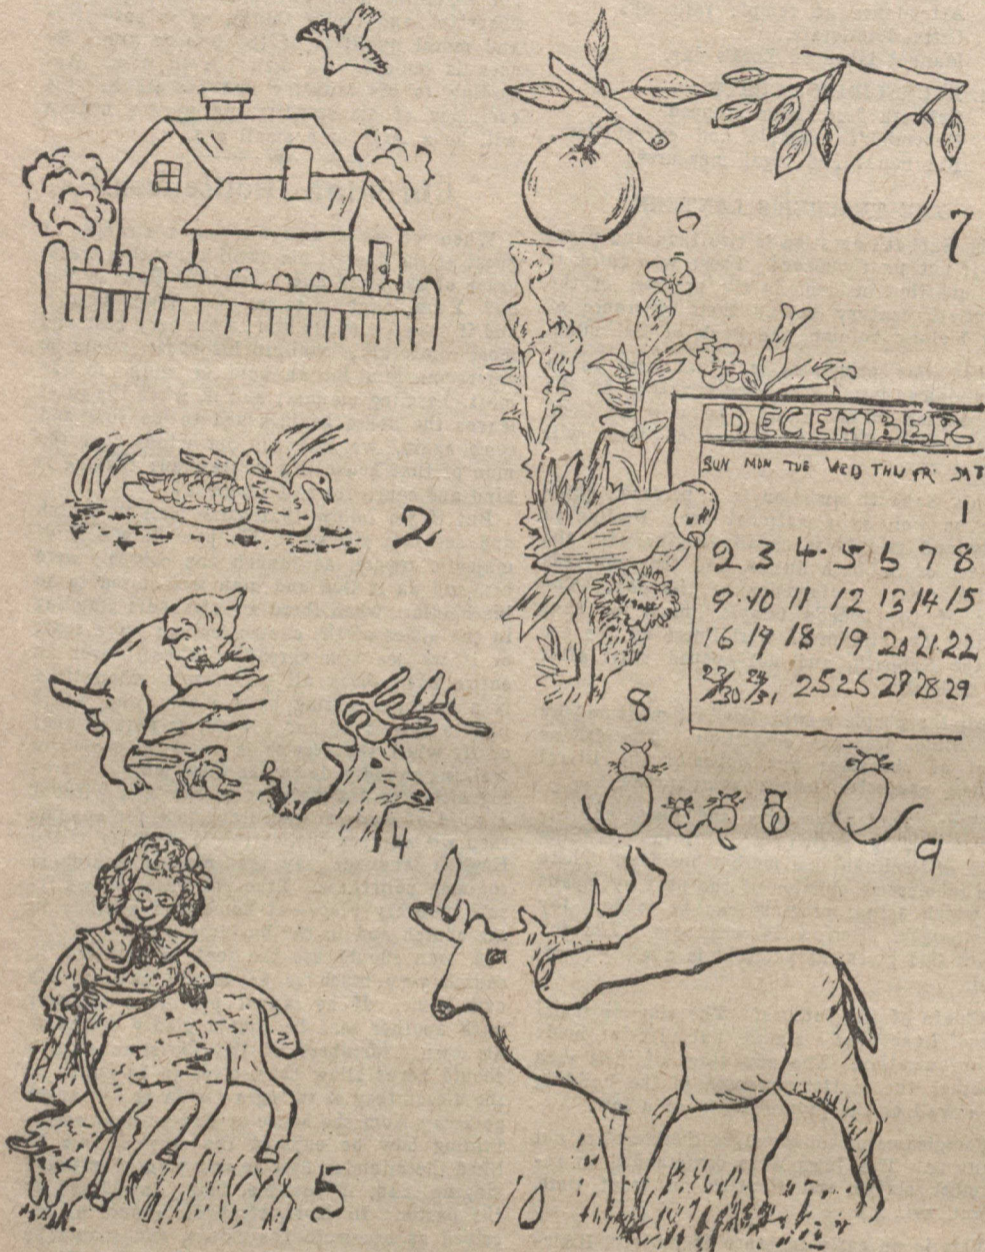 6
7
DECEMBER
SUN MON TUE WED THU FRI SAT
1
2 3 4 5 6 7 8
9 10 11 12 13 14 15
16 19 18 19 20 21 22
23/30 24/31 25 26 27 28 29
2
8
14
9
5
10